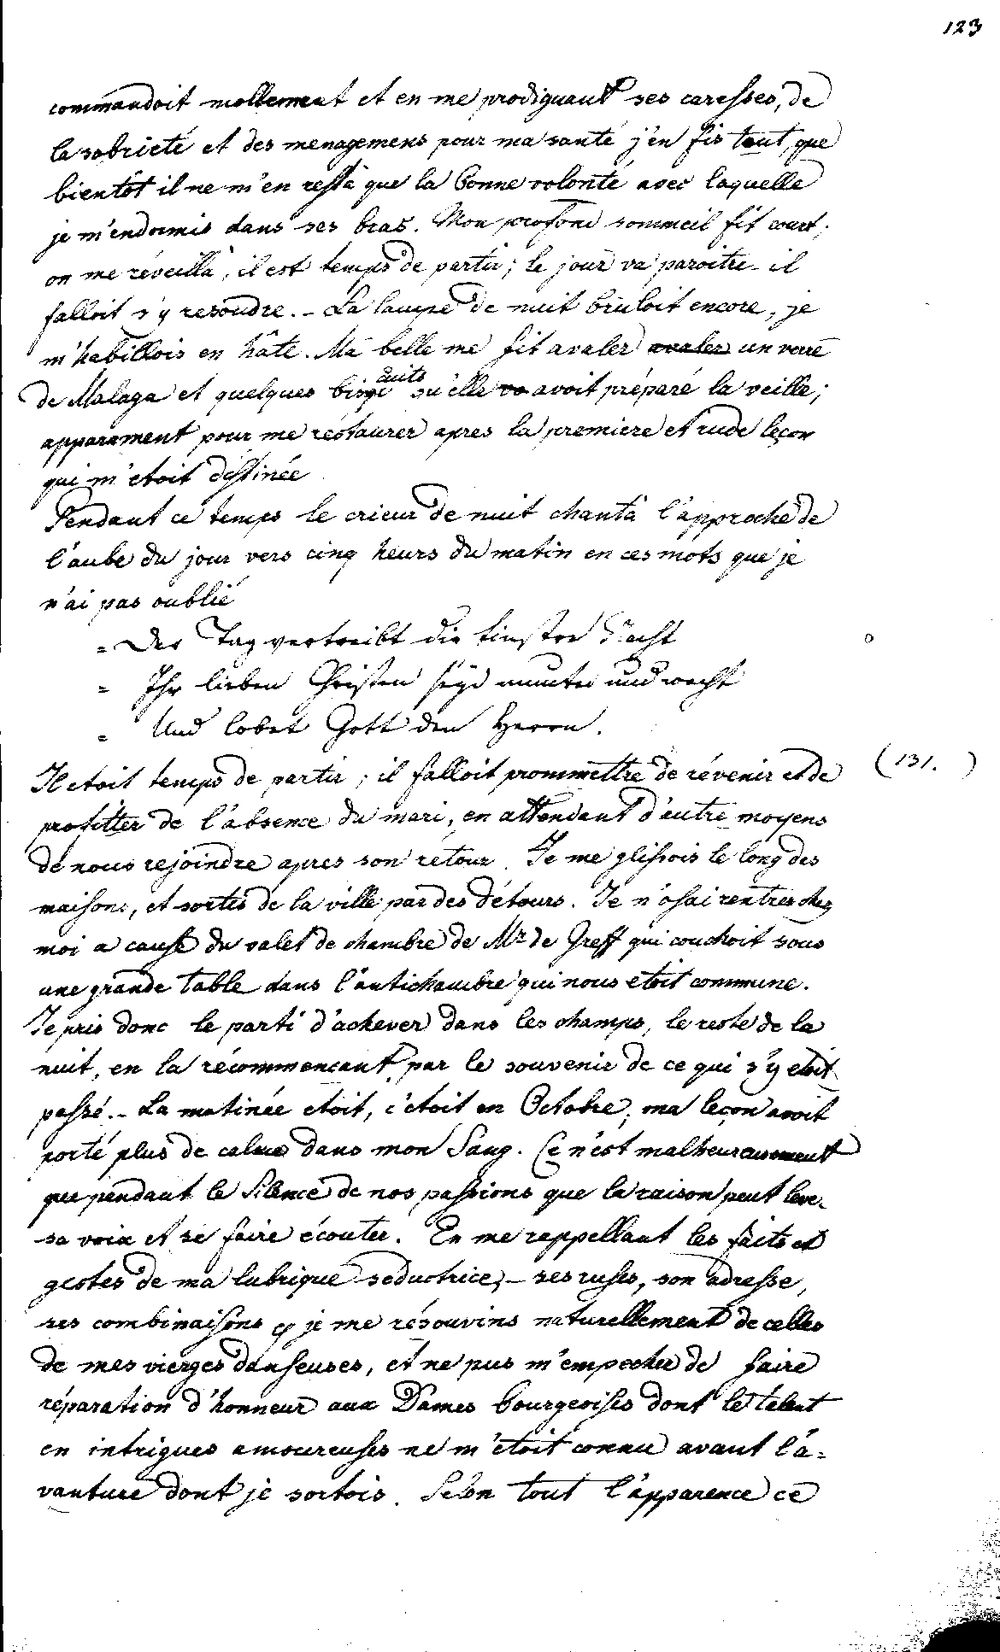 123
commandoit mollement et en me prodiguant ses caresses, de
la sobrieté et des menagemens pour ma santé j'en fis tant, que
bientôt il ne m'en resta que la bonne volonté avec laquelle
je m'endormis dans ses bras. Mon profond sommeil fit court;
on me réveilla, il est temps de partir; le jour va paroitre. il
falloit s'y resoudre. – La lampe de nuit bruloit encore, je
m'habillois en hâte. Ma belle me fit avaler avaler un verre
de Malaga et quelques biscuits qu'elle avoit préparé la veille;
apparament pour me restaurer apres la premiere et rude leçon
qui m'etoit destinée
Pendant ce temps le crieur de nuit chanta l'approche de
l'aube du jour vers cinq heurs du matin en ces mots que je
n'ai pas oublié
= Der Tag vertreibt die finstre Nacht
= Ihr lieben Christen seyd munter und wacht
= Und lobet Gott den Herrn.
Il etoit temps de partir; il falloit prommettre de révenir et de (131.)
profitter de l'absence du mari, en attendant d'autre moyens
de nous rejoindre apres son retour. Je me glissois le long des
maisons, et sortis de la ville par des détours. Je n'osai rentrer chez
moi a cause du valet de chambre de Mr. de Greff qui couchoit sous
une grande table dans l'antichambre qui nous etoit commune.
Je pris donc le parti d'achever dans les champs, le reste de la
nuit, en la récommencant par le souvenir de ce qui s'y etoit
passé. – La matinée etoit, c'étoit en Octobre; ma leçon avoit
porté plus de calme dans mon Sang. Ce n'est malheureusement
que pendant le Silence de nos passions que la raison peut lever
sa voix et se faire écouter. En me rappellant les faits et
gestes de ma lubrique seductrice, – ses ruses, son adresse,
ses combinaisons je me résouvins naturellement de celles
de mes vierges danseuses, et ne pus m'empecher de faire
réparation d'honneur aux Dames bourgeoises dont le talent
en intrigues amoureuses ne m'étoit connu avant l'a-
vanture dont je sortois. Selon tout l'apparence ce